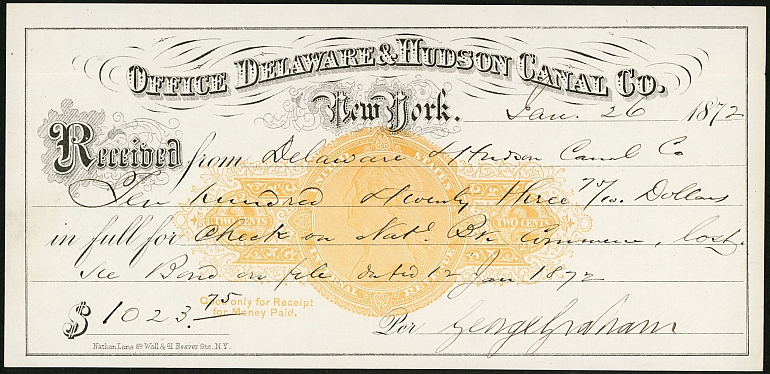 OFFICE DELAWARE & HUDSON CANAL CO.
New York. Jan. 26 1872
Received from Delaware & Hudson Canal Co
Ten hundred & twenty three 75/100 Dollars
in full for Check on Natl. Bk Commerce, lost.
See Bond on file dated 12 Jan 1872
UNITED STATES
TWO CENTS TWO CENTS
INTERNAL REVENUE
Good only for Receipt
for Money Paid.
$1023.75
Per George Graham
Nathan Lane 69 Wall & 41 Beaver Sts. N.Y.